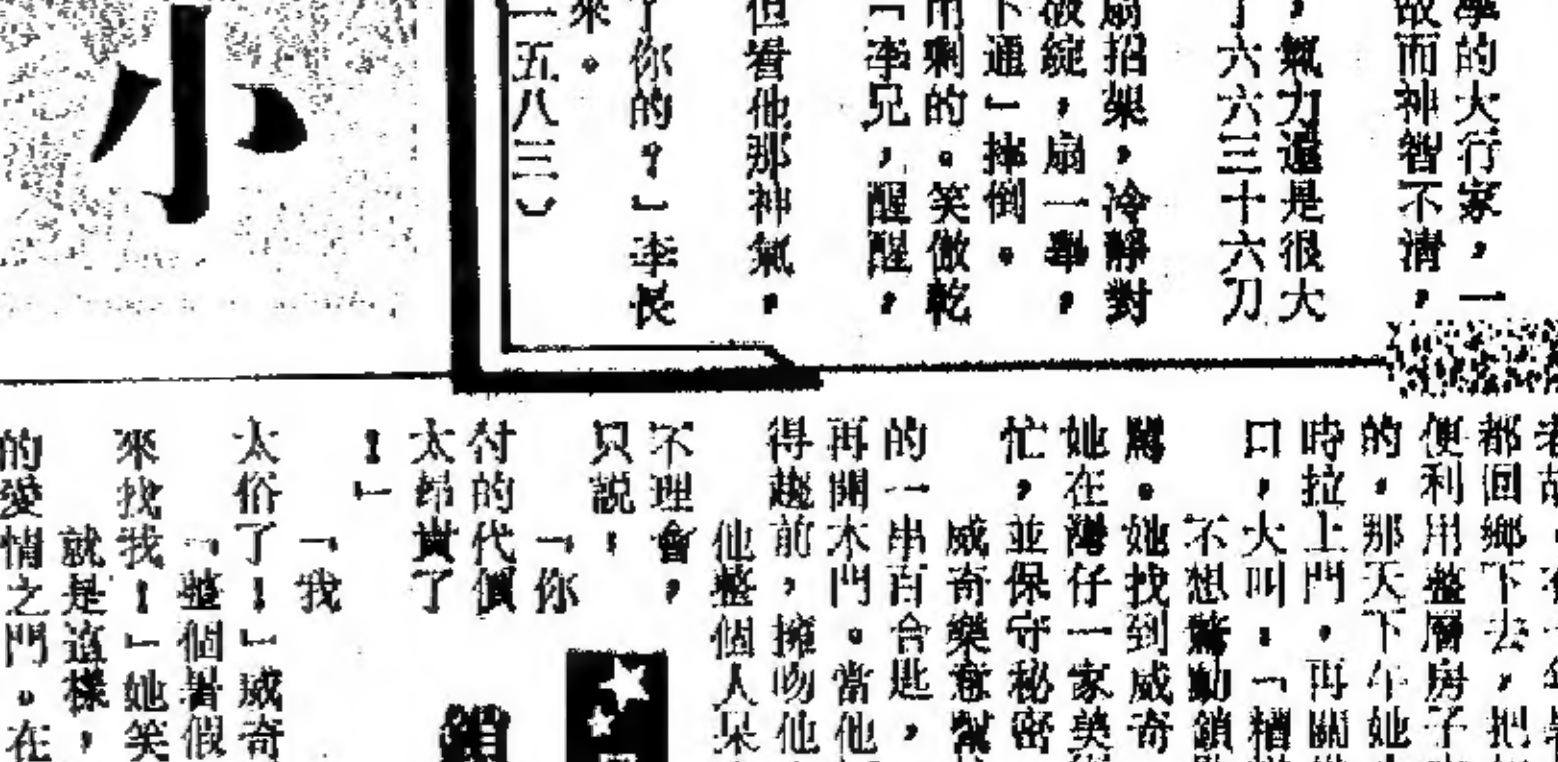 學的大行家，一
故而神智不清，
，氣力還是很大
了六六三十六刀
扇招架，冷靜對
破綻，扇一舉，
下通」摔倒。
用剩的。笑傲乾
「李兄，醒醒，
但看他那神氣，
了你的？」李長
來。
一五八三）
小
都回鄉下去，把
便利用整層房子
的，那天下午她
時拉上門，再關
口，大叫：「糟
不想驚動鎖
罵。她找到威奇
她在灣仔一家美
忙，並保守秘密
威奇樂意幫
的一串百合匙，
再開木門。當他
得趣前，擁吻他
他整個人呆
不理會，
只說：
「你
付的代價
太昂貴了
！」
「我
太俗了！」威奇
「整個暑假
來找我！」她笑
就是這樣，
的愛情之門。在
鎖